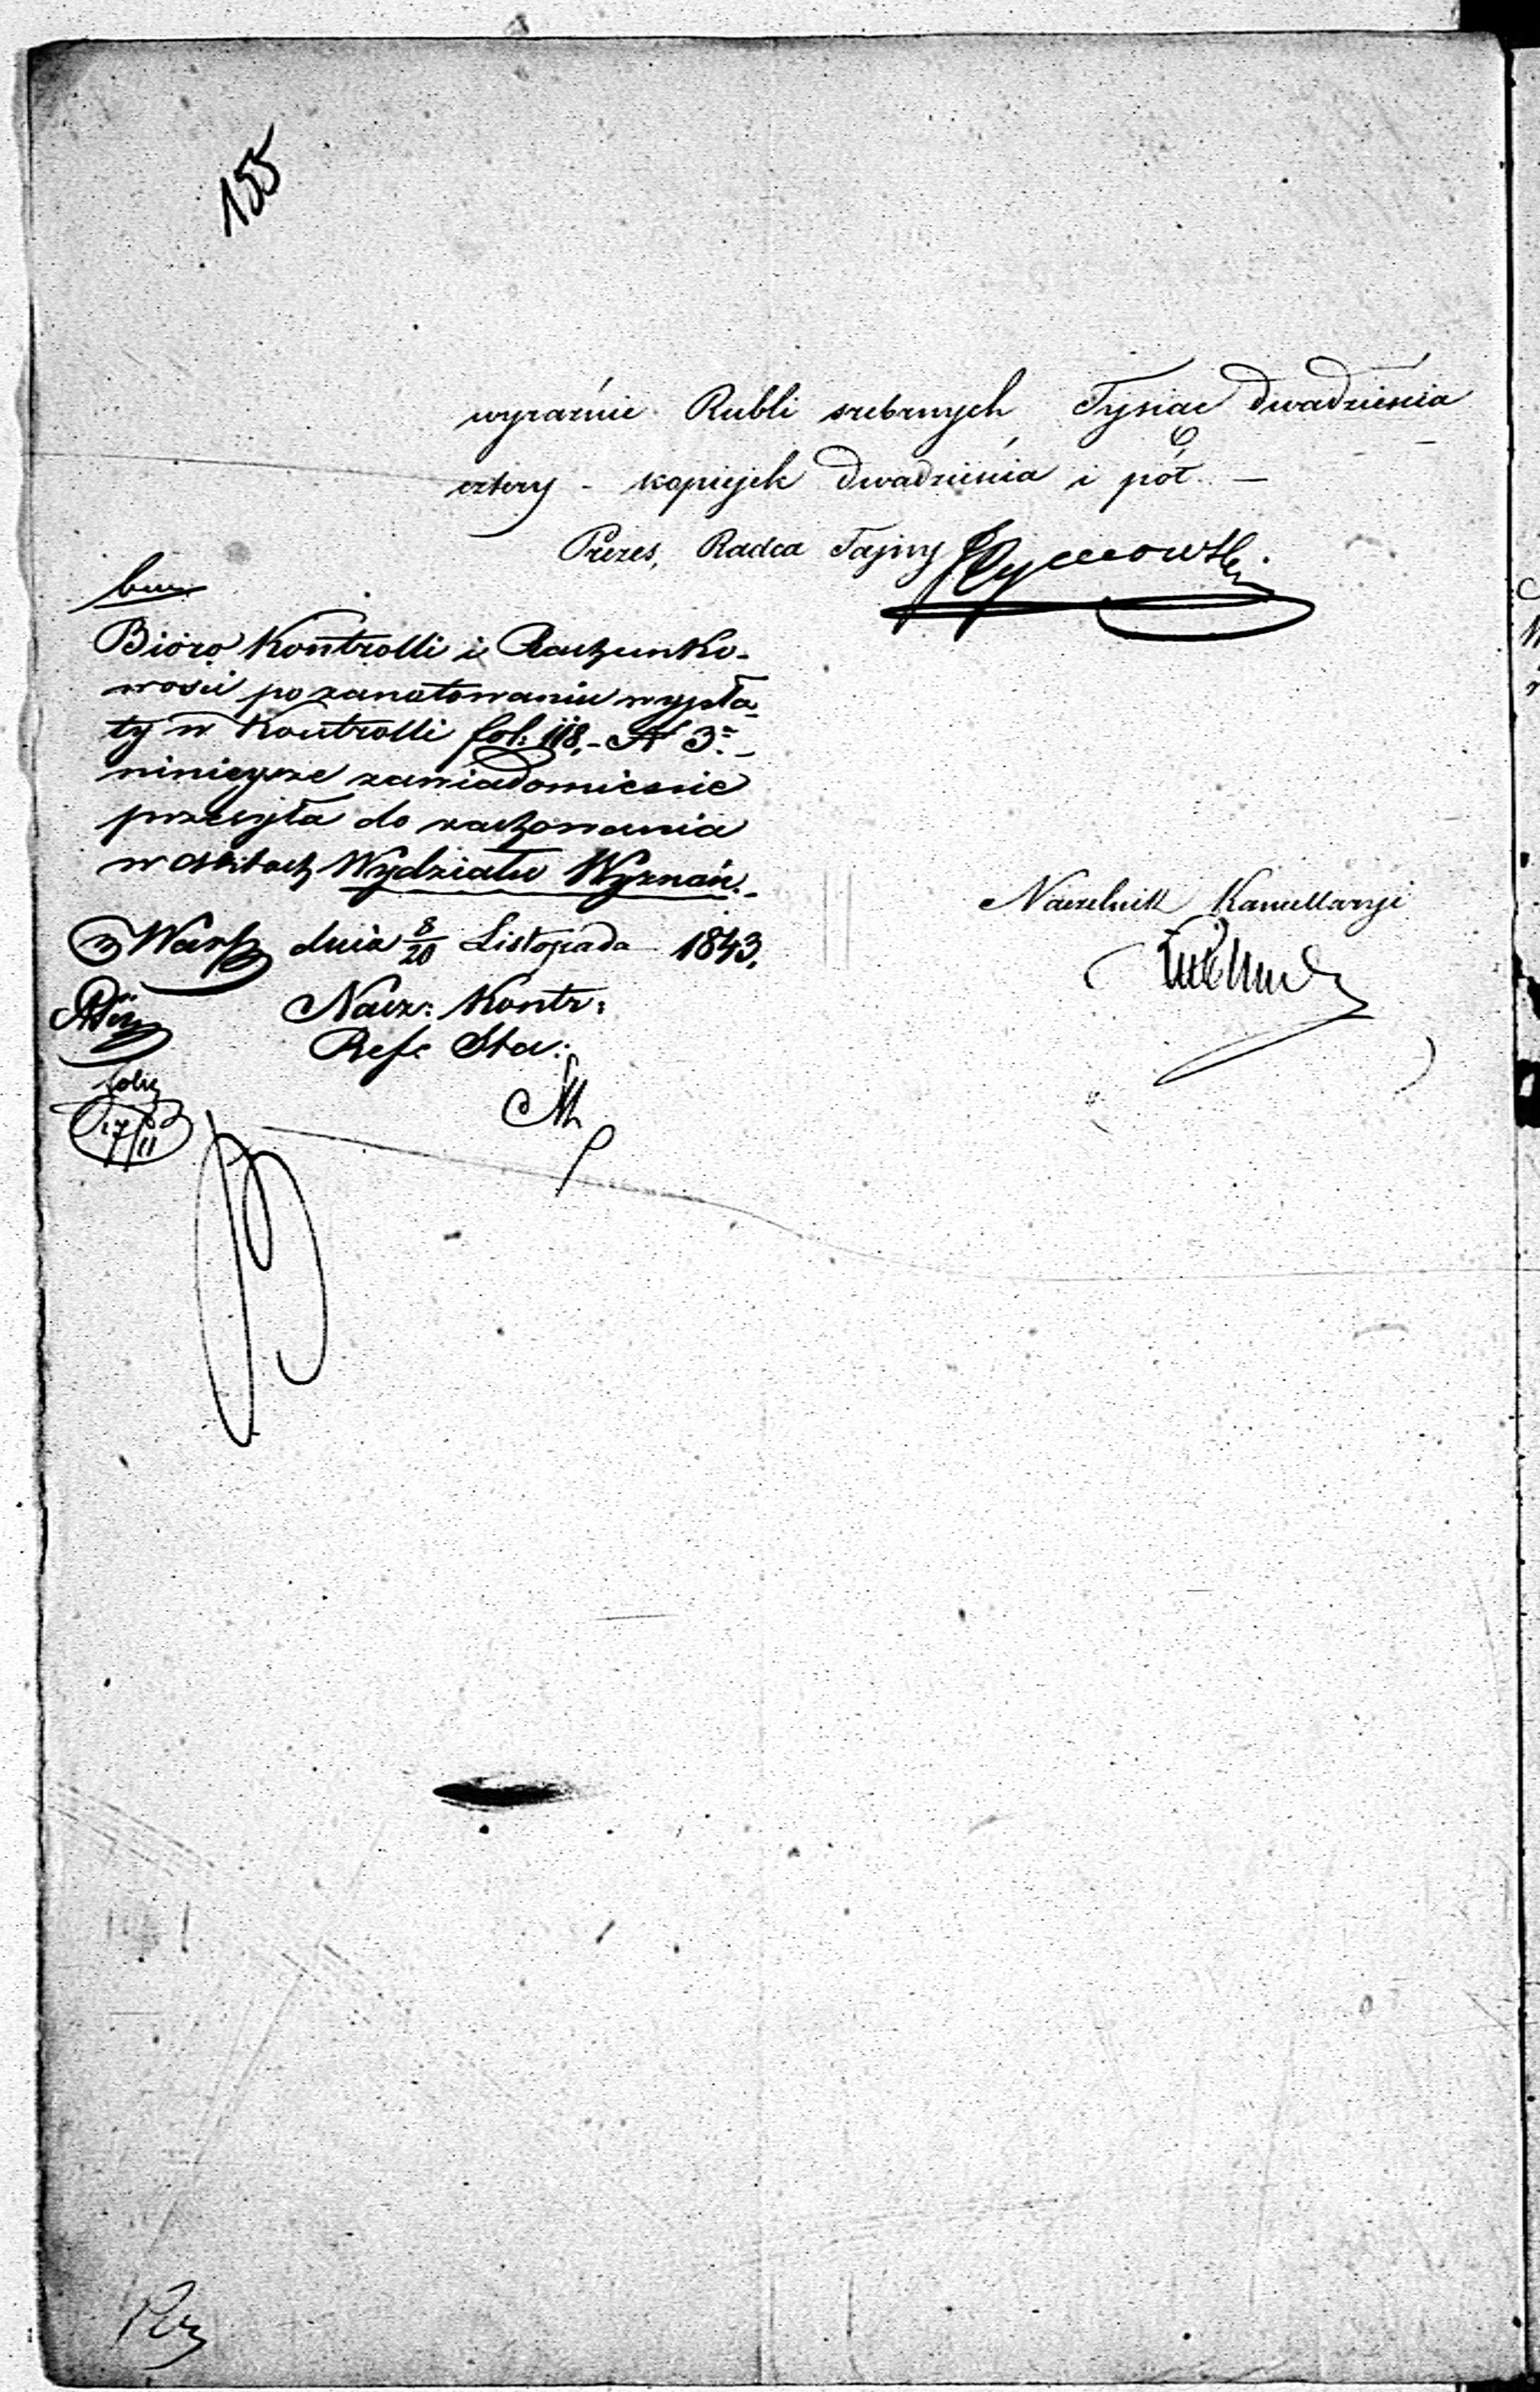 155
wyraźnie Rubli srebrnych Tysiąc dwadzieścia
cztery - kopiejek dwadzieścia i pół. -
Prezes, Radca Tajny
Bióro Kontrolli i Rachunko-
wości po zanotowaniu wypła-
ty w Kontrolli fol: 118. - N 3.
niniejsze zawiadomienie
przesyła do zachowania
w Aktach Wydziału Wyznań. -
w Warsz dnia 8/20 Listopada 1843.
Nacz: Kontr:
Ref: Sta:
Naczelnik Kancellaryi
17/11